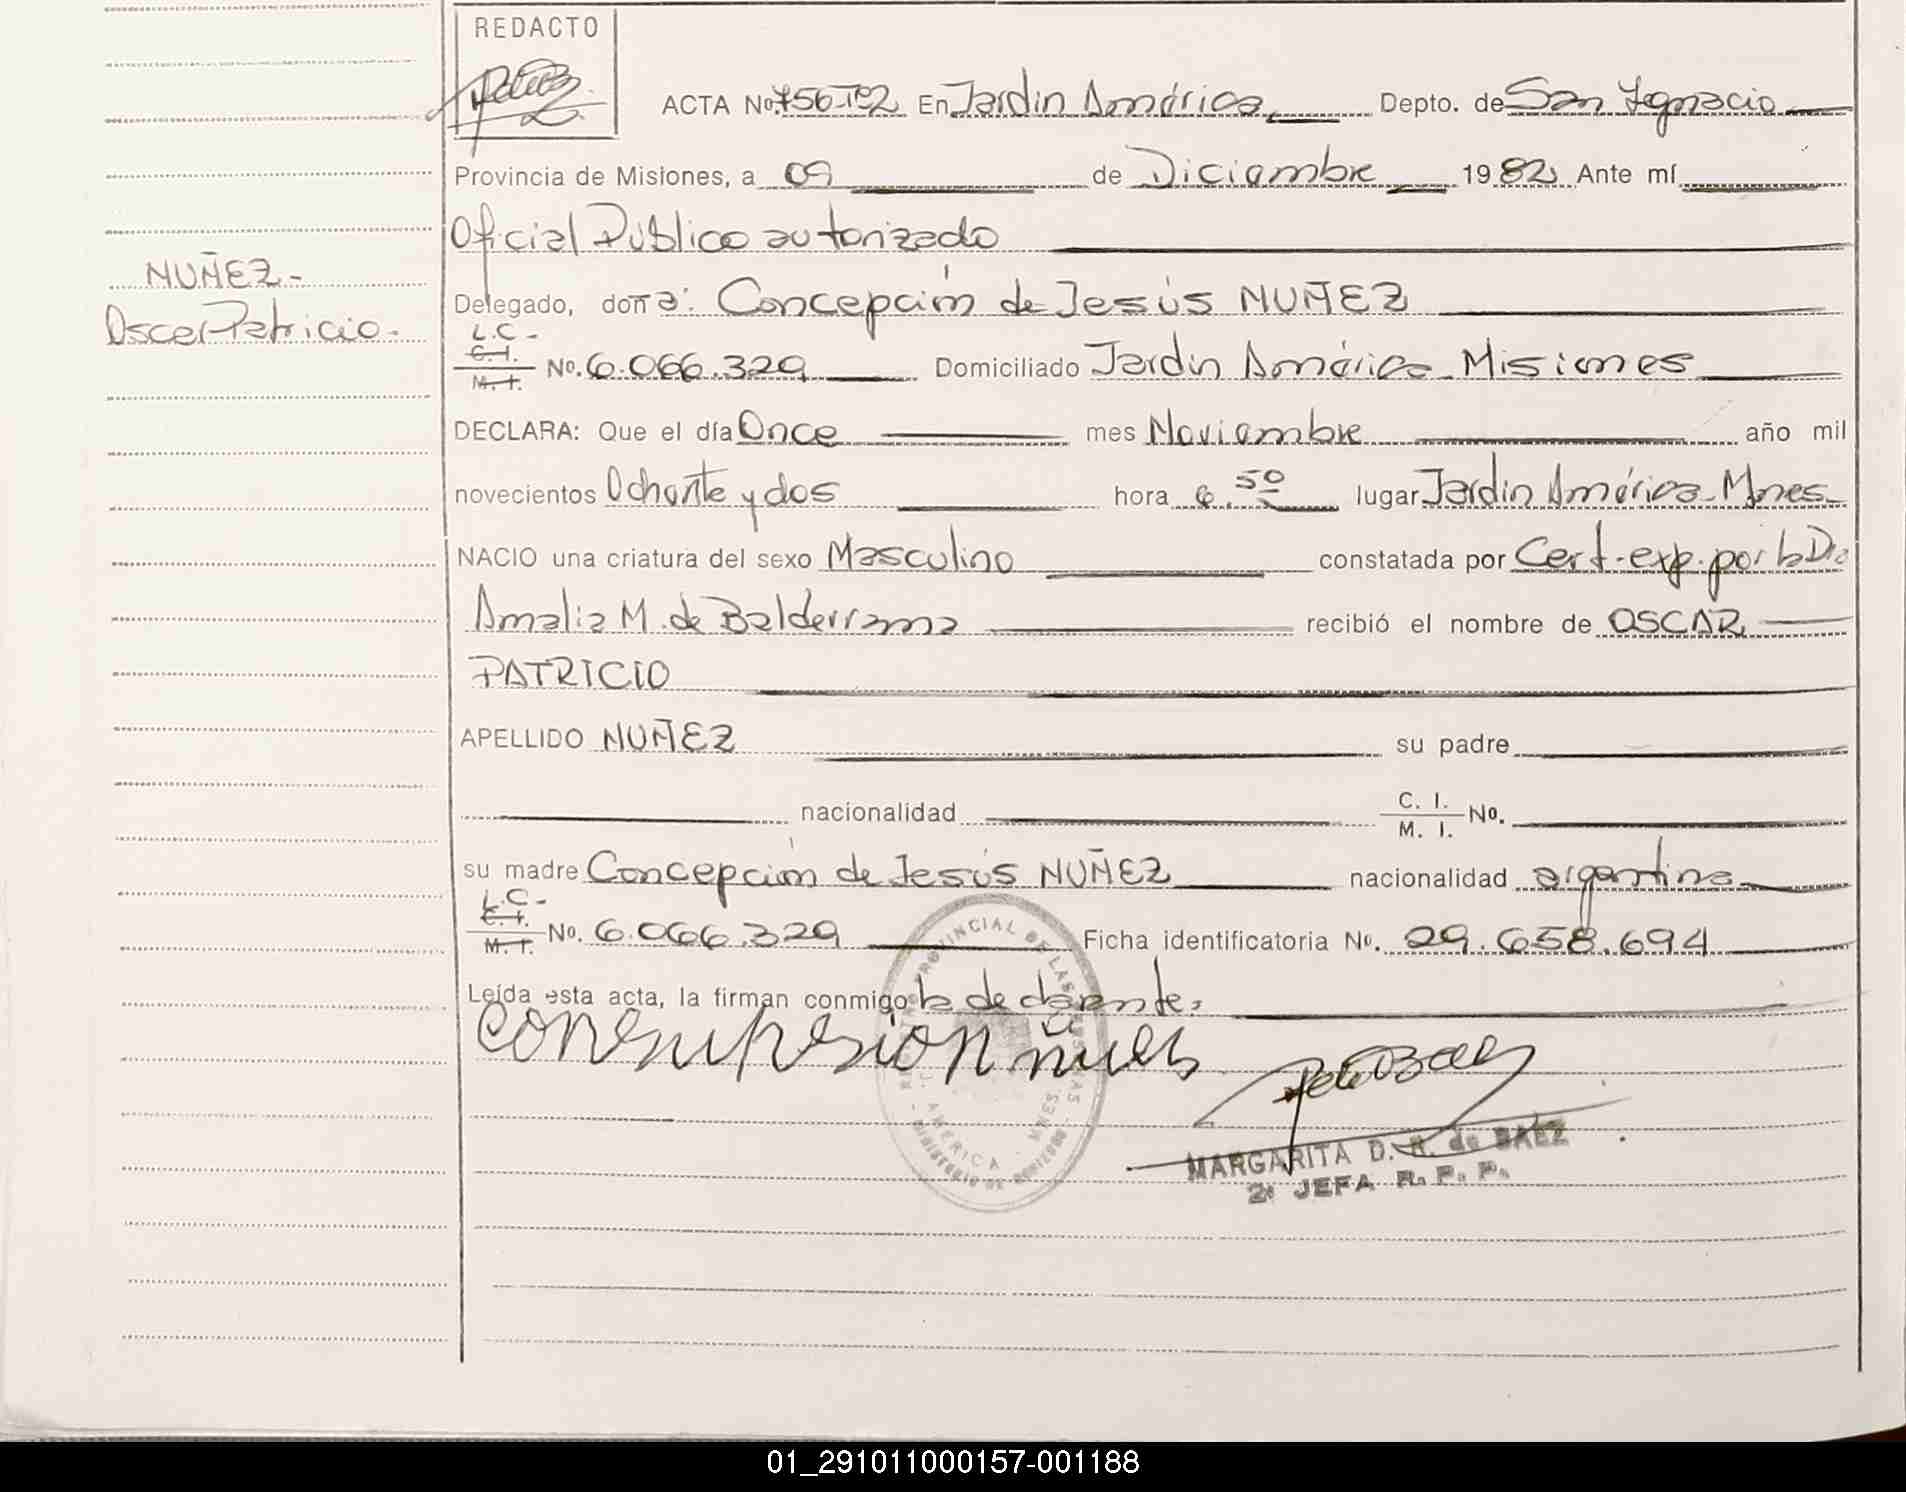 REDACTO
ACTA No 756-Tº2 En Jardín América, Depto. de San Ignacio
Provincia de Misiones, a 09 de Diciembre 1982 Ante mí
Oficial Público autorizado
NUÑEZ-
Oscar Patricio-
Delegado, doña: Concepción de Jesús NUÑEZ
L.C-
C.I.
M.I.
No. 6.066.329 Domiciliado Jardín América-Misiones
DECLARA: Que el día Once mes Noviembre año mil
novecientos Ochenta y dos hora 6.50 lugar Jardín América-Mnes-
NACIO una criatura del sexo Masculino constatada por Cert.exp.por la Dra
Amalia M. de Balderrama recibió el nombre de OSCAR
PATRICIO
APELLIDO NUÑEZ su padre
nacionalidad C. I. M. I. No.
su madre Concepción de Jesús NUÑEZ nacionalidad argentina
L.C-
C.I.
M.I.
No. 6.066.329 Ficha identificatoria No. 29.658.694
Leída esta acta, la firman conmigo la declarante,
MARGARITA D. R. de BAEZ
2ª JEFA R. P. P.
01_291011000157-001188